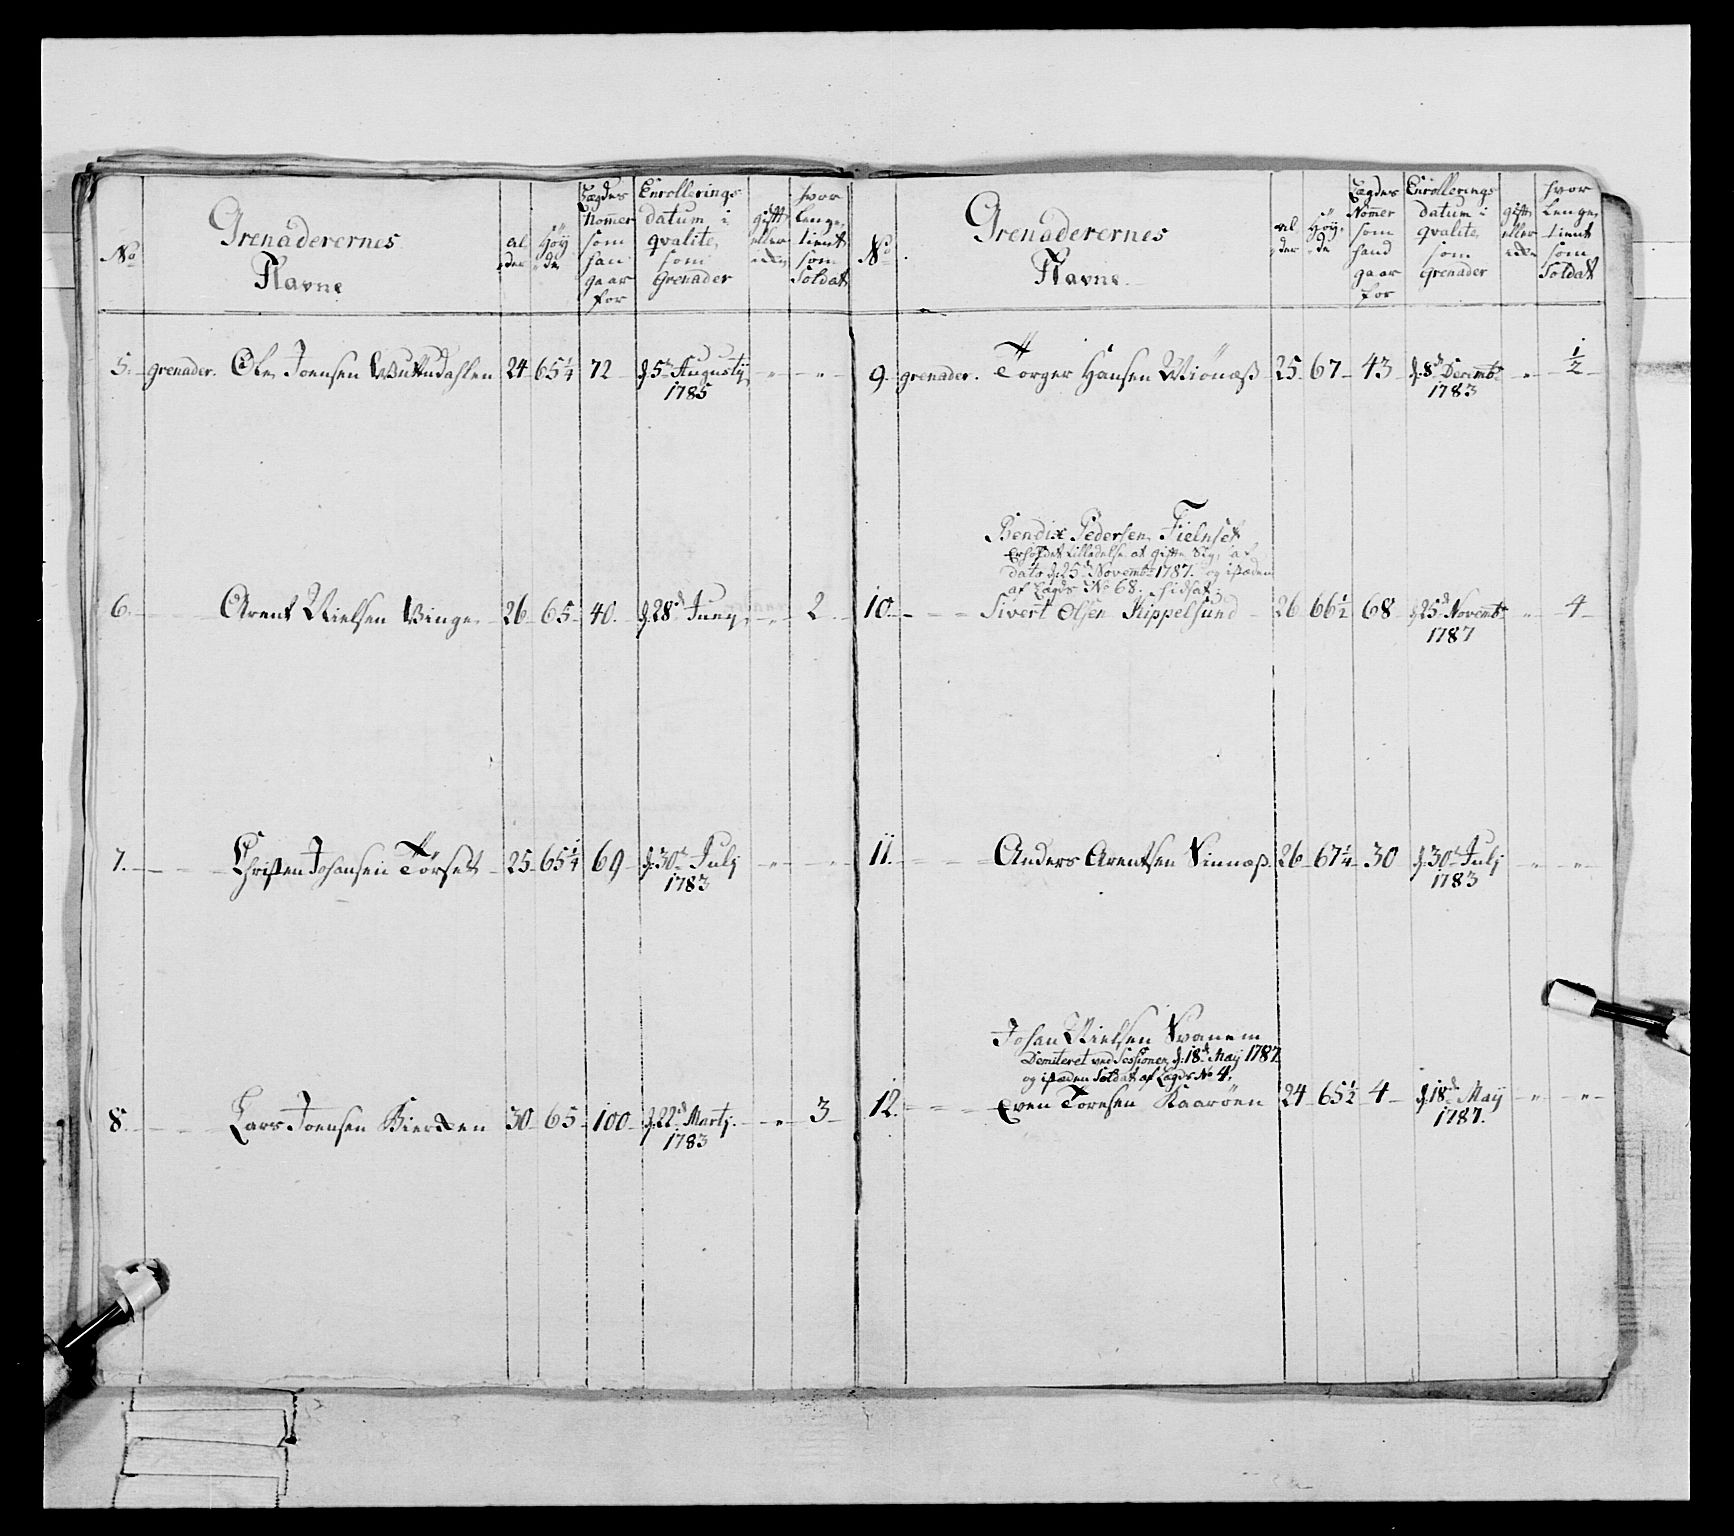 No
Grenaderernes
Navne
al
der
Höy
de
Lægdes
Nomer
som
han
gaar
for
Enrollerings
datum i
qvalite
som
Grenader
gift
eller
ikke
hvor
lenge
tient
som
Soldat
5. grenader. Ole Joensen Wuttudahlen 24 65¼ 72 d. 5te Augustij " "
1785
6. Arent Nielsen Vinge 26 65 40. d. 28d Junij " 2
7. Christen Johansen Tørset 25 65¼ 69 d. 30te Julj " "
1783
8. Lars Joensen Kierden 30 65 100 d. 22d Martj. " 3
1783
No
Grenaderernes
Navne
al
der
Höy
de
Lægdes
Nomer
som
hand
gaar
for
Enrollerings
datum i
qvalite
som
Grenader
gift
eller
ikke
hvor
lenge
tient
som
Soldat
9. grenader. Torger Hansen Wiönæss 25 67 43 d. 8d Decembr " ½
1783
Bendix Pedersen Fielnset
Erholdet tilladelse at gifte Sig, af
dato d. 25d Novembr 1787. og isteden
af Lægds No 68. hidsat,
10. Sivert Olsen Kippelsund 26 66½ 68 d. 25d Novembr " 4
1787
11. Anders Arentsen Vinnæss 26 67¼ 30 d. 30te Julj " "
1783
Johan Nielsen Svanem
Demiteret ved Sessionen d. 18d Maij 1787
og isteden Soldat af Lægds No 4.
12. Even Toresen Kaaröen 24 65½ 4 d. 18d Maij " "
1787.